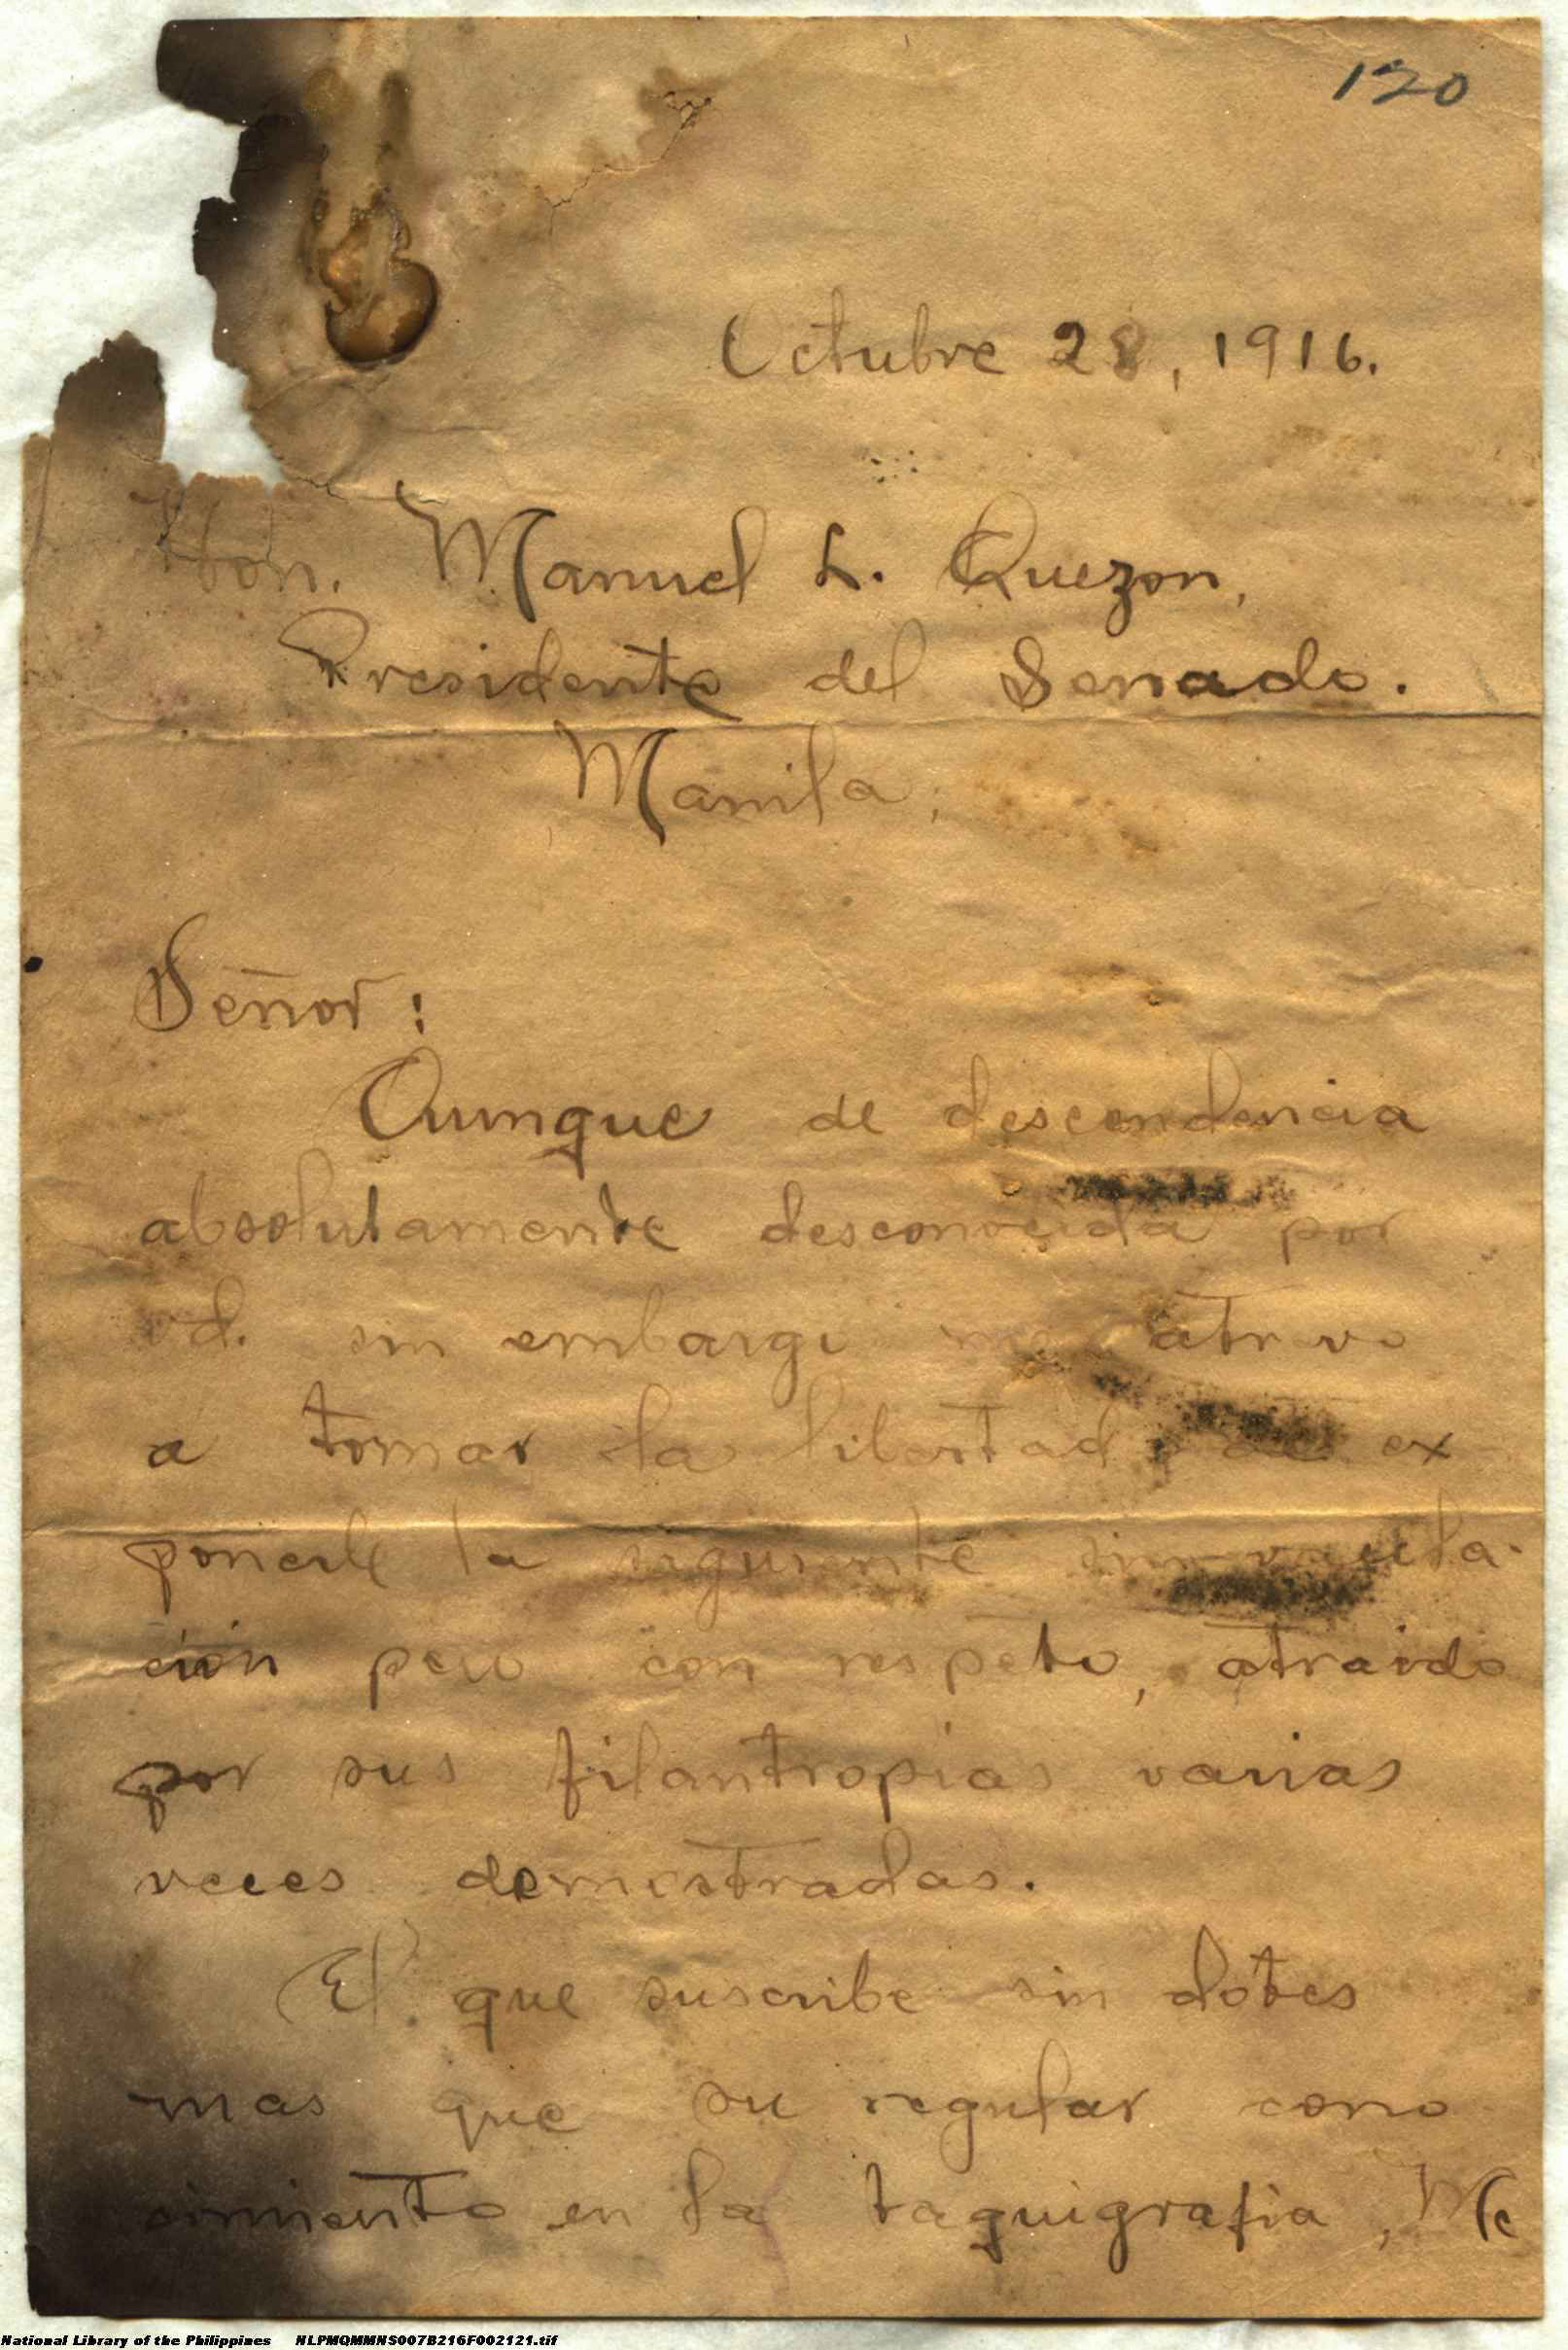 120
Octubre 28, 1916.
Hon. Manuel L. Quezon,
Presidente del Senado.
Manila;
Señor:
Aunque de descendencia
absolutamente desconocida por
vd. sin embargo me atrevo
a tomar la libertad de ex
ponerle la siguiente sin vacila-
ción pero con respeto, atraido
por sus filantropias varias
veces demostradas.
El que suscribe sin dotes
mas que su regular cono
cimiento en la taquigrafia, Mc
National Library of the Philippines NLPMQMMNS007B216F002121.tif